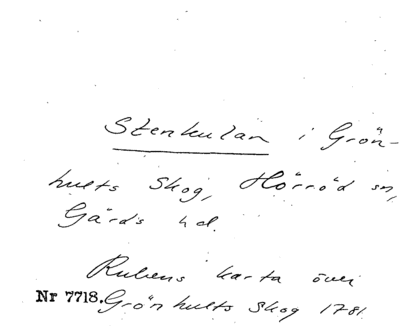 Stenkulan i Grön-
hults Skog, Hörröd sn,
Gärds hd.
Rubens karta över
Nr 7718. Grönhults Skog 1781.